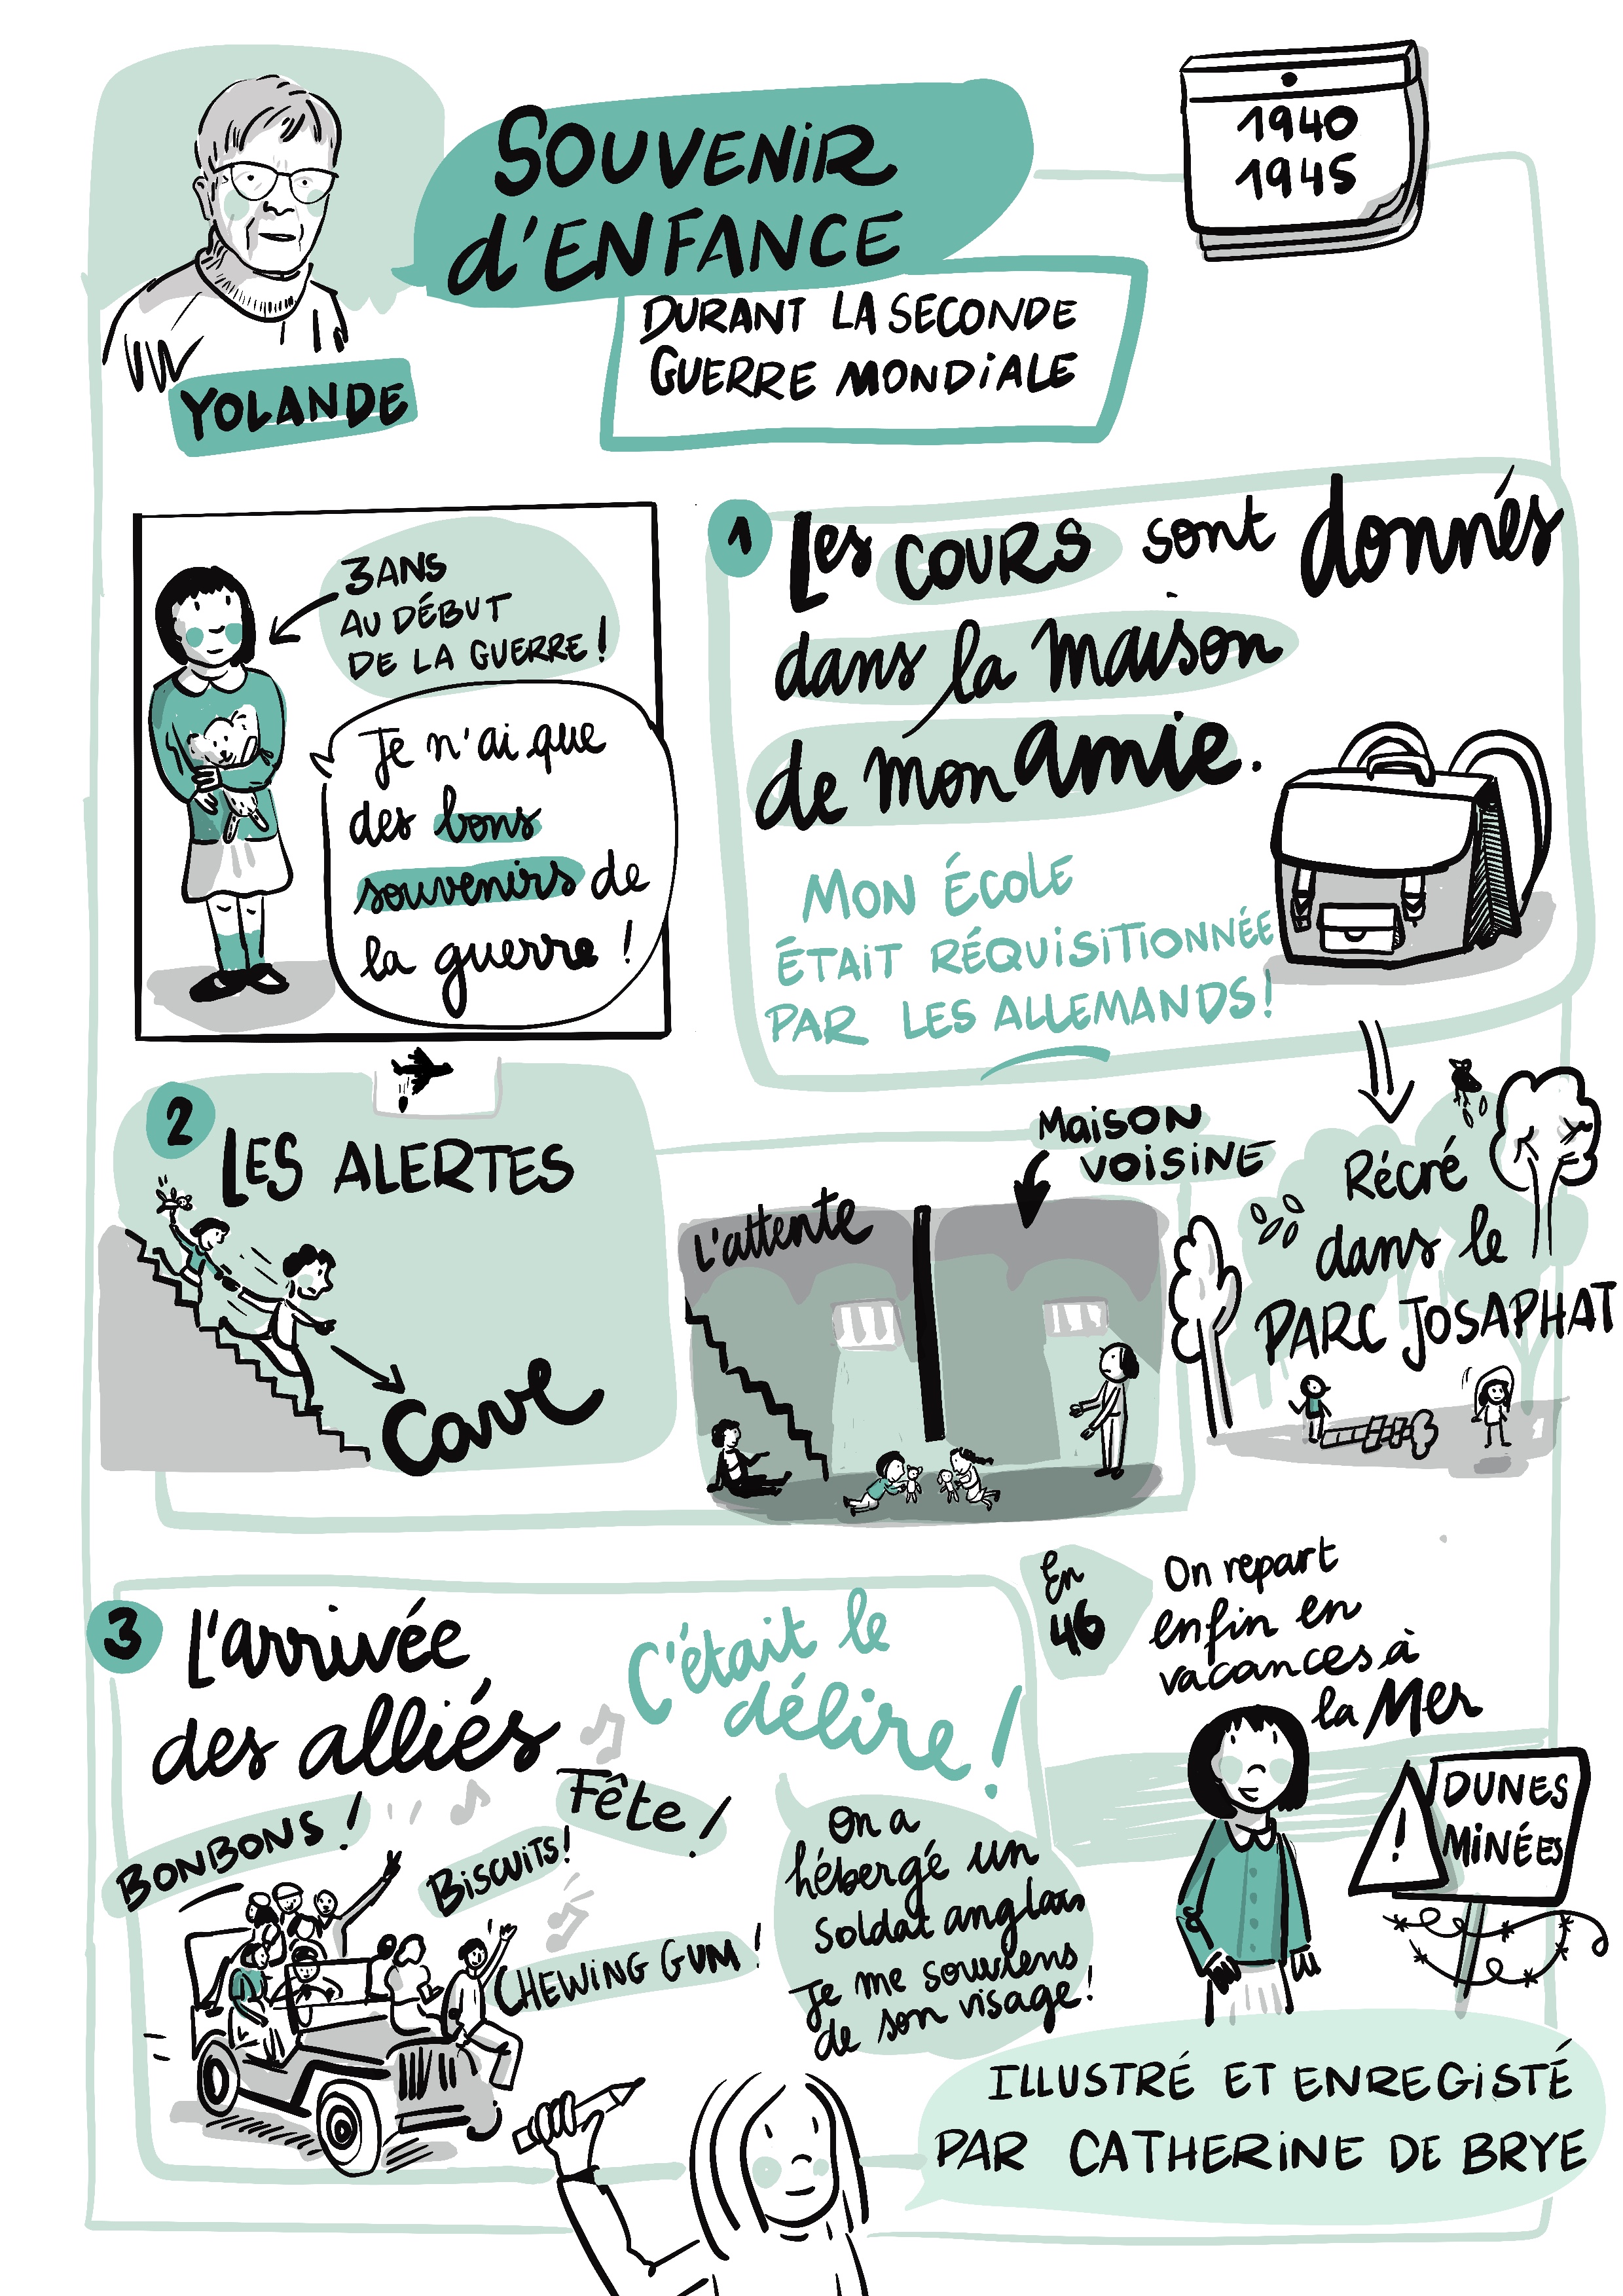 SOUVENIR
d'ENFANCE
DURANT LA SECONDE
GUERRE MONDIALE
1940
1945
YOLANDE
3 ANS
AU DÉBUT
DE LA GUERRE !
Je n'ai que
des bons
souvenirs de
la guerre !
1 Les COURS sont donnés
dans la maison
de mon amie.
MON ÉCOLE
ÉTAIT RÉQUISITIONNÉE
PAR LES ALLEMANDS !
2 LES ALERTES
Cave
L'attente
MAISON
VOISINE
Récré
dans le
PARC JOSAPHAT
3 L'arrivée
des alliés
C'était le
délire !
BONBONS !
BISCUITS !
Fête !
CHEWING GUM !
On a
hébergé un
soldat anglais
Je me souviens
de son visage !
En
46
On repart
enfin en
vacances à
la Mer
!
DUNES
MINÉES
ILLUSTRÉ ET ENREGISTÉ
PAR CATHERINE DE BRYE